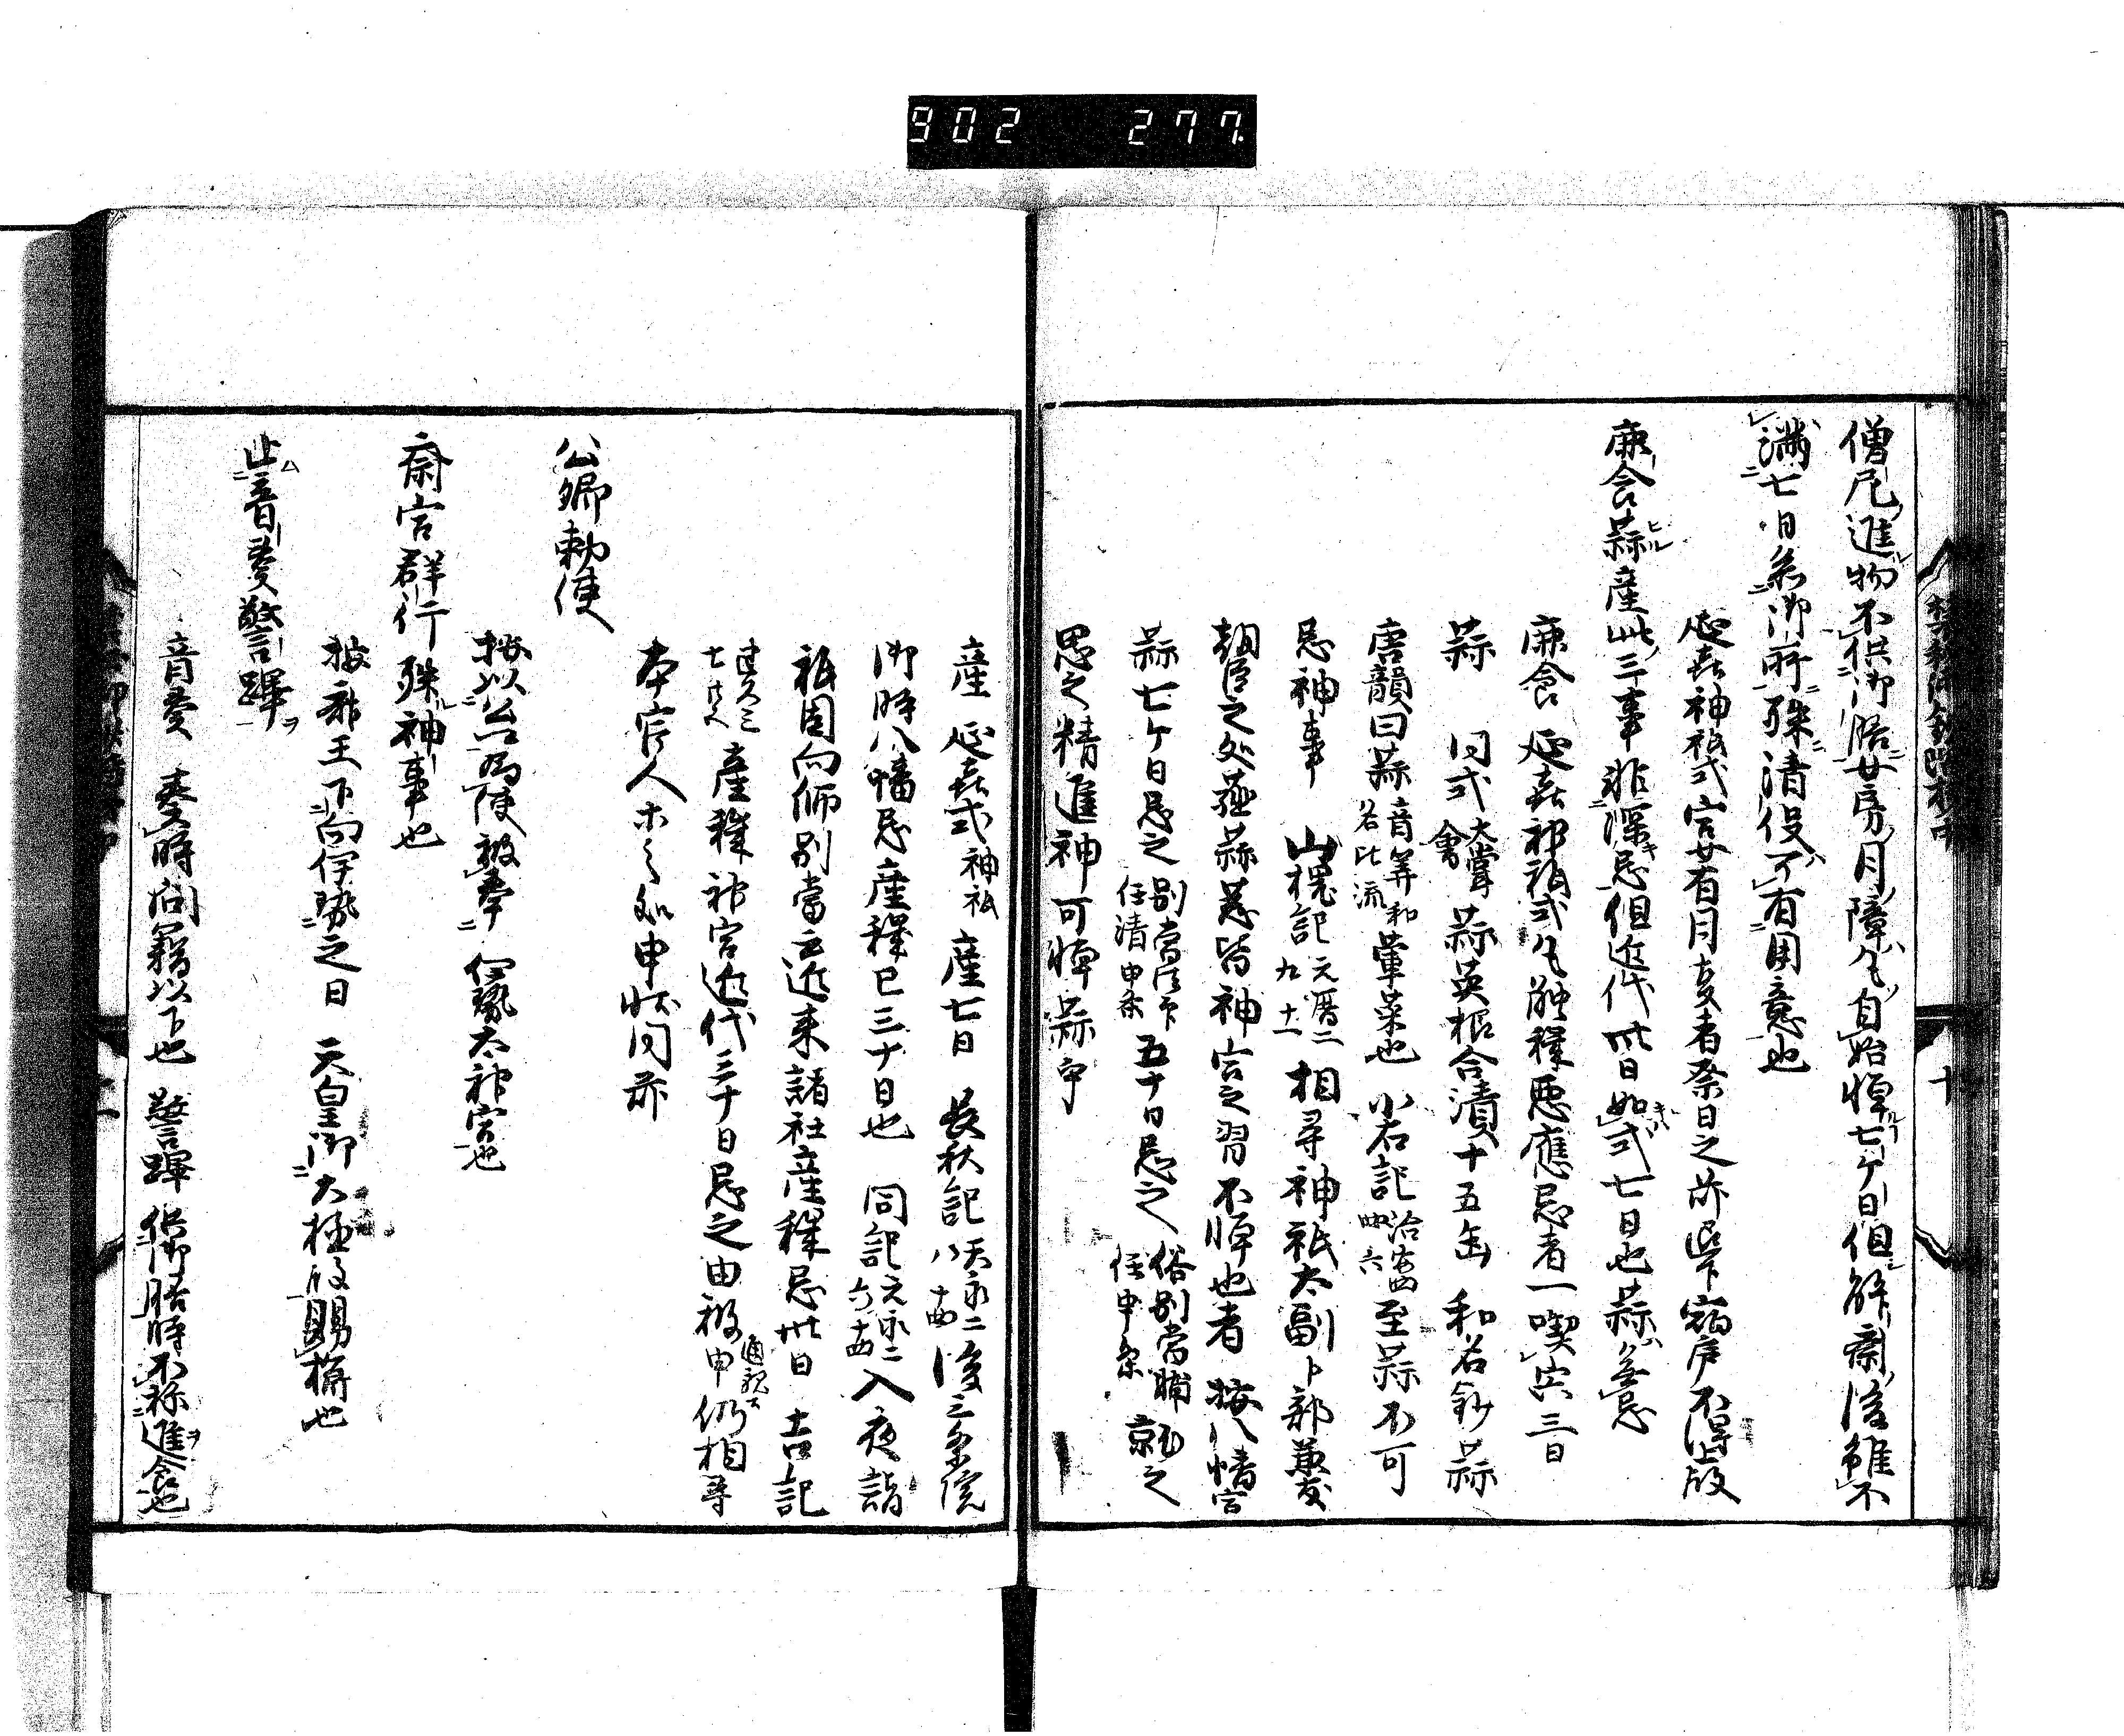 902 277
僧尼進物不供御膳女房月障凡自始憚七ケ日但解斎後雖不
満七日參御所殊清役可有用意也
延喜神祇式宮女有月事者祭日之前退下宿廬不得上殿
鹿食蒜産此三事非深忌但近代卅日如式七日也蒜無忌
鹿食 延喜神祇式凡触穢悪應忌者一喫宍三日
蒜 同式大嘗會 蒜英根合漬十五缶 和名鈔蒜
唐韻曰蒜音筭和名比流 葷菜也 小右記治安四 六 至蒜不可
忌神事 山槐記元暦二 九 十一 相尋神祇大副卜部兼友
朝臣之処薤蒜葱皆神宮之習不憚也者 按八幡宮
蒜七ケ日忌之別當 任清申条 五十日忌之俗別當 任申条 就之
思之精進神可憚蒜乎
産 延喜式神祇 産七日 長秋記天永二 八 十四 後三条院
御時八幡忌産穢已三十日也 同記元永二 六 入夜詣
祇園向師別當云近来諸社産穢忌卅日 吉記
産穢神宮近代三十日忌之由被申仍相尋
本宮人ホ之処申状同前
公卿勅使
按以公卿為使被奉伊勢太神宮也
斎宮群行殊神事也
按斎王下向伊勢之日 天皇御大極殿賜櫛也
止音奏警蹕
音奏 奏時向籍以下也 警蹕 供御膳時不称進食也